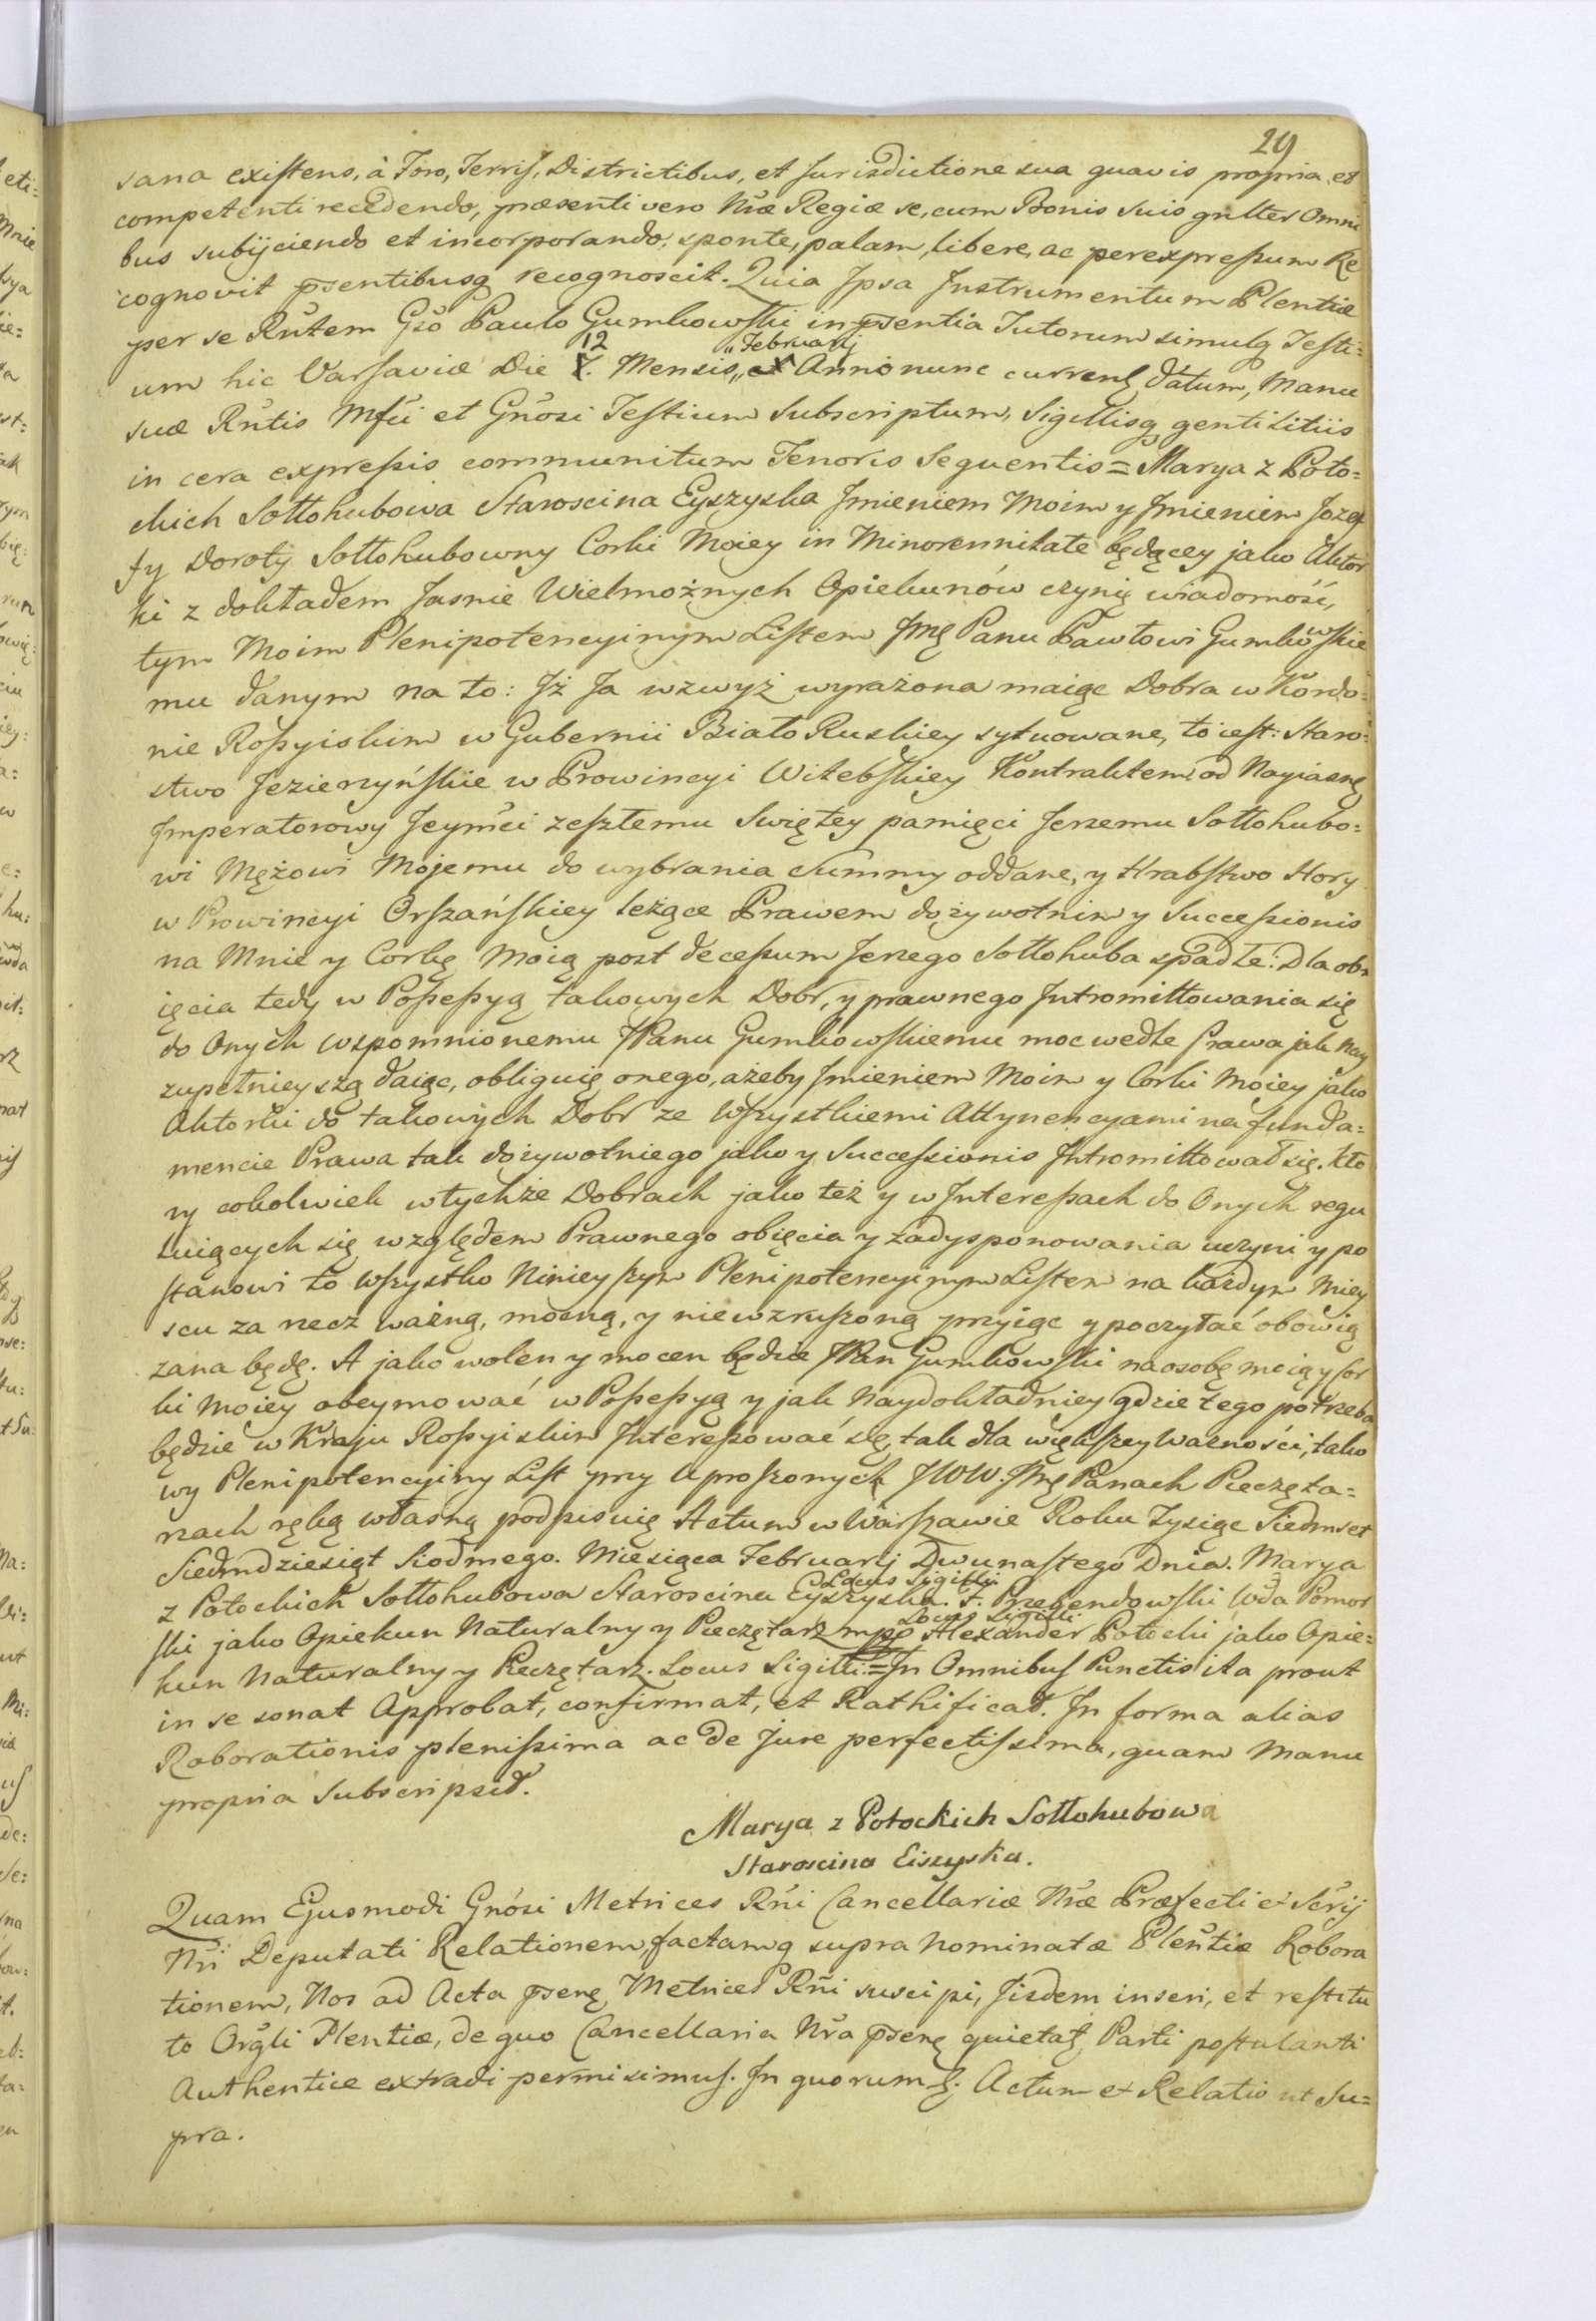 29
sana existens, à Foro, Terris, Districtibus, et Jurisdictione sua quavis propria et
competenti recedendo, præsenti vero Nr̃æ Regiæ se, cum Bonis suis gn̄lter Omni
bus subijciendo et incorporando, sponte, palam, libere, ac perexpressum Re
cognovit p̃sentibusq recognoscit. Quia Ipsa Instrumentum Plentiæ
per se Rñtem Gso Paulo Gumkowski in p̃sentia Tutorum simulq Testi=
um hic Varsaviæ Die 12 Mensis „Februarij Anni nunc currenţ datum, Manu
suæ Rñtis Mfci et Gñosi Testium Subscriptum, Sigillisq gentilitiis
in cera expressis communitum Tenoris Sequentis = Marya z Poto=
ckich Sołłohubowa Staroscina Eyszyska Imieniem Moim y Imieniem Joze
fy Doroty Sołłohubowny Corki Moiey in Minorennitate będącey jako Aktor
ki z dokładem Jasnie Wielmożnych Opiekunów czynię wiadomość,
tym Moim Plenipotencyinym Listem Jmę Panu Pawłowi Gumkowskie
mu danym na to: Iż Ja wzwyż wyrażona maiąc Dobra w Kordo=
nie Rossyiskim w Gubernii Biało Ruskiey sytuowane, to iest: Staro=
stwo Jezierzyńskie w Prowincyi Witebskiey Kontraktem od Nayiasnę
Imperatorowy Jeymći zeszłemu Swiętey pamięci Jerzemu Sołłohubo=
wi Mężowi Mojemu do wybrania Summy oddane, y Hrabstwo Hory
w Prowincyi Orszańskiey leżące Prawem dożywotnim y Successionis
na Mnie y Corkę Moią post decessum Jerzego Sołłohuba spadłe: Dla ob=
ięcia tedy w Possessyą takowych Dobr, y prawnego Intromittowania się
do Onych wspomnionemu JPanu Gumkowskiemu moc wedle Prawa jak Nay
zupełnieyszą daiąc, obliguię onego, ażeby Imieniem Moim y Corki Moiey jako
Aktorki do takowych Dobr ze Wszystkiemi Attynencyami na funda=
mencie Prawa tak dożywotniego jako y Successionis Intromittował się. Kto
ry cokolwiek w tychże Dobrach jako też y w Interessach do Onych regu
luiących się względem Prawnego obięcia y zadysponowania uczyni y po
stanowi to Wszystko Ninieyszym Plenipotencyinym Listem na każdym Miey
scu za rzecz ważną, mocną, y niewzruszoną przyiąc y poczytać obowią
zana będę. A jako wolen y mocen będzie JPan Gumkowski na osobę moią y Cor
ki Moiey obeymować w Possessyą y jak Naydokładniey gdzie tego potrzeba
będzie w Kraju Rossyiskim Interessować się, tak dla większey Ważności, tako
wy Plenipotencyiny List przy Uproszonych JWW. Jmę Panach Pieczęta=
rzach ręką własną podpisuię Actum w Warszawie Roku Tysiąc Siedmset
Siedmdziesiąt Siodmego. Miesiąca Februarij Dwunastego Dnia. Marya
z Potockich Sołłohubowa Staroscina Eyszyska. Locus Sigilli. I. Przebendowski Wda Pomor
ski jako Opiekun Naturalny y Pieczętarz mpp Locus Sigilli. Alexander Potocki jako Opie=
kun Naturalny y Pieczętarz. Locus Sigilli = In Omnibus Punctis ita prout
in se sonat Approbat, confirmat, et Rathificat. In forma alias
Roborationis plenissima ac de Jure perfectissima, quam Manu
propria Subscripsit.
Marya z Potockich Sołłohubowa
Staroscina Eiszyska.
Quam Ejusmodi Gñosi Metrices Rñi Cancellariæ Nr̃æ Præfecti et Scr̃ij
Nr̃i Deputati Relationem, factamq supra nominatæ Plen̄tiæ Robora
tionem, Nos ad Acta p̃senţ Metrices Rñi suscipi, Iisdem inseri, et restitu
to Orḡli Plentiæ, de quo Cancellaria Nr̃a p̃senţ quietaţ Parti postulanti
Authentice extradi permisimus. In quorum ţ. Actum et Relatio ut Su=
pra.